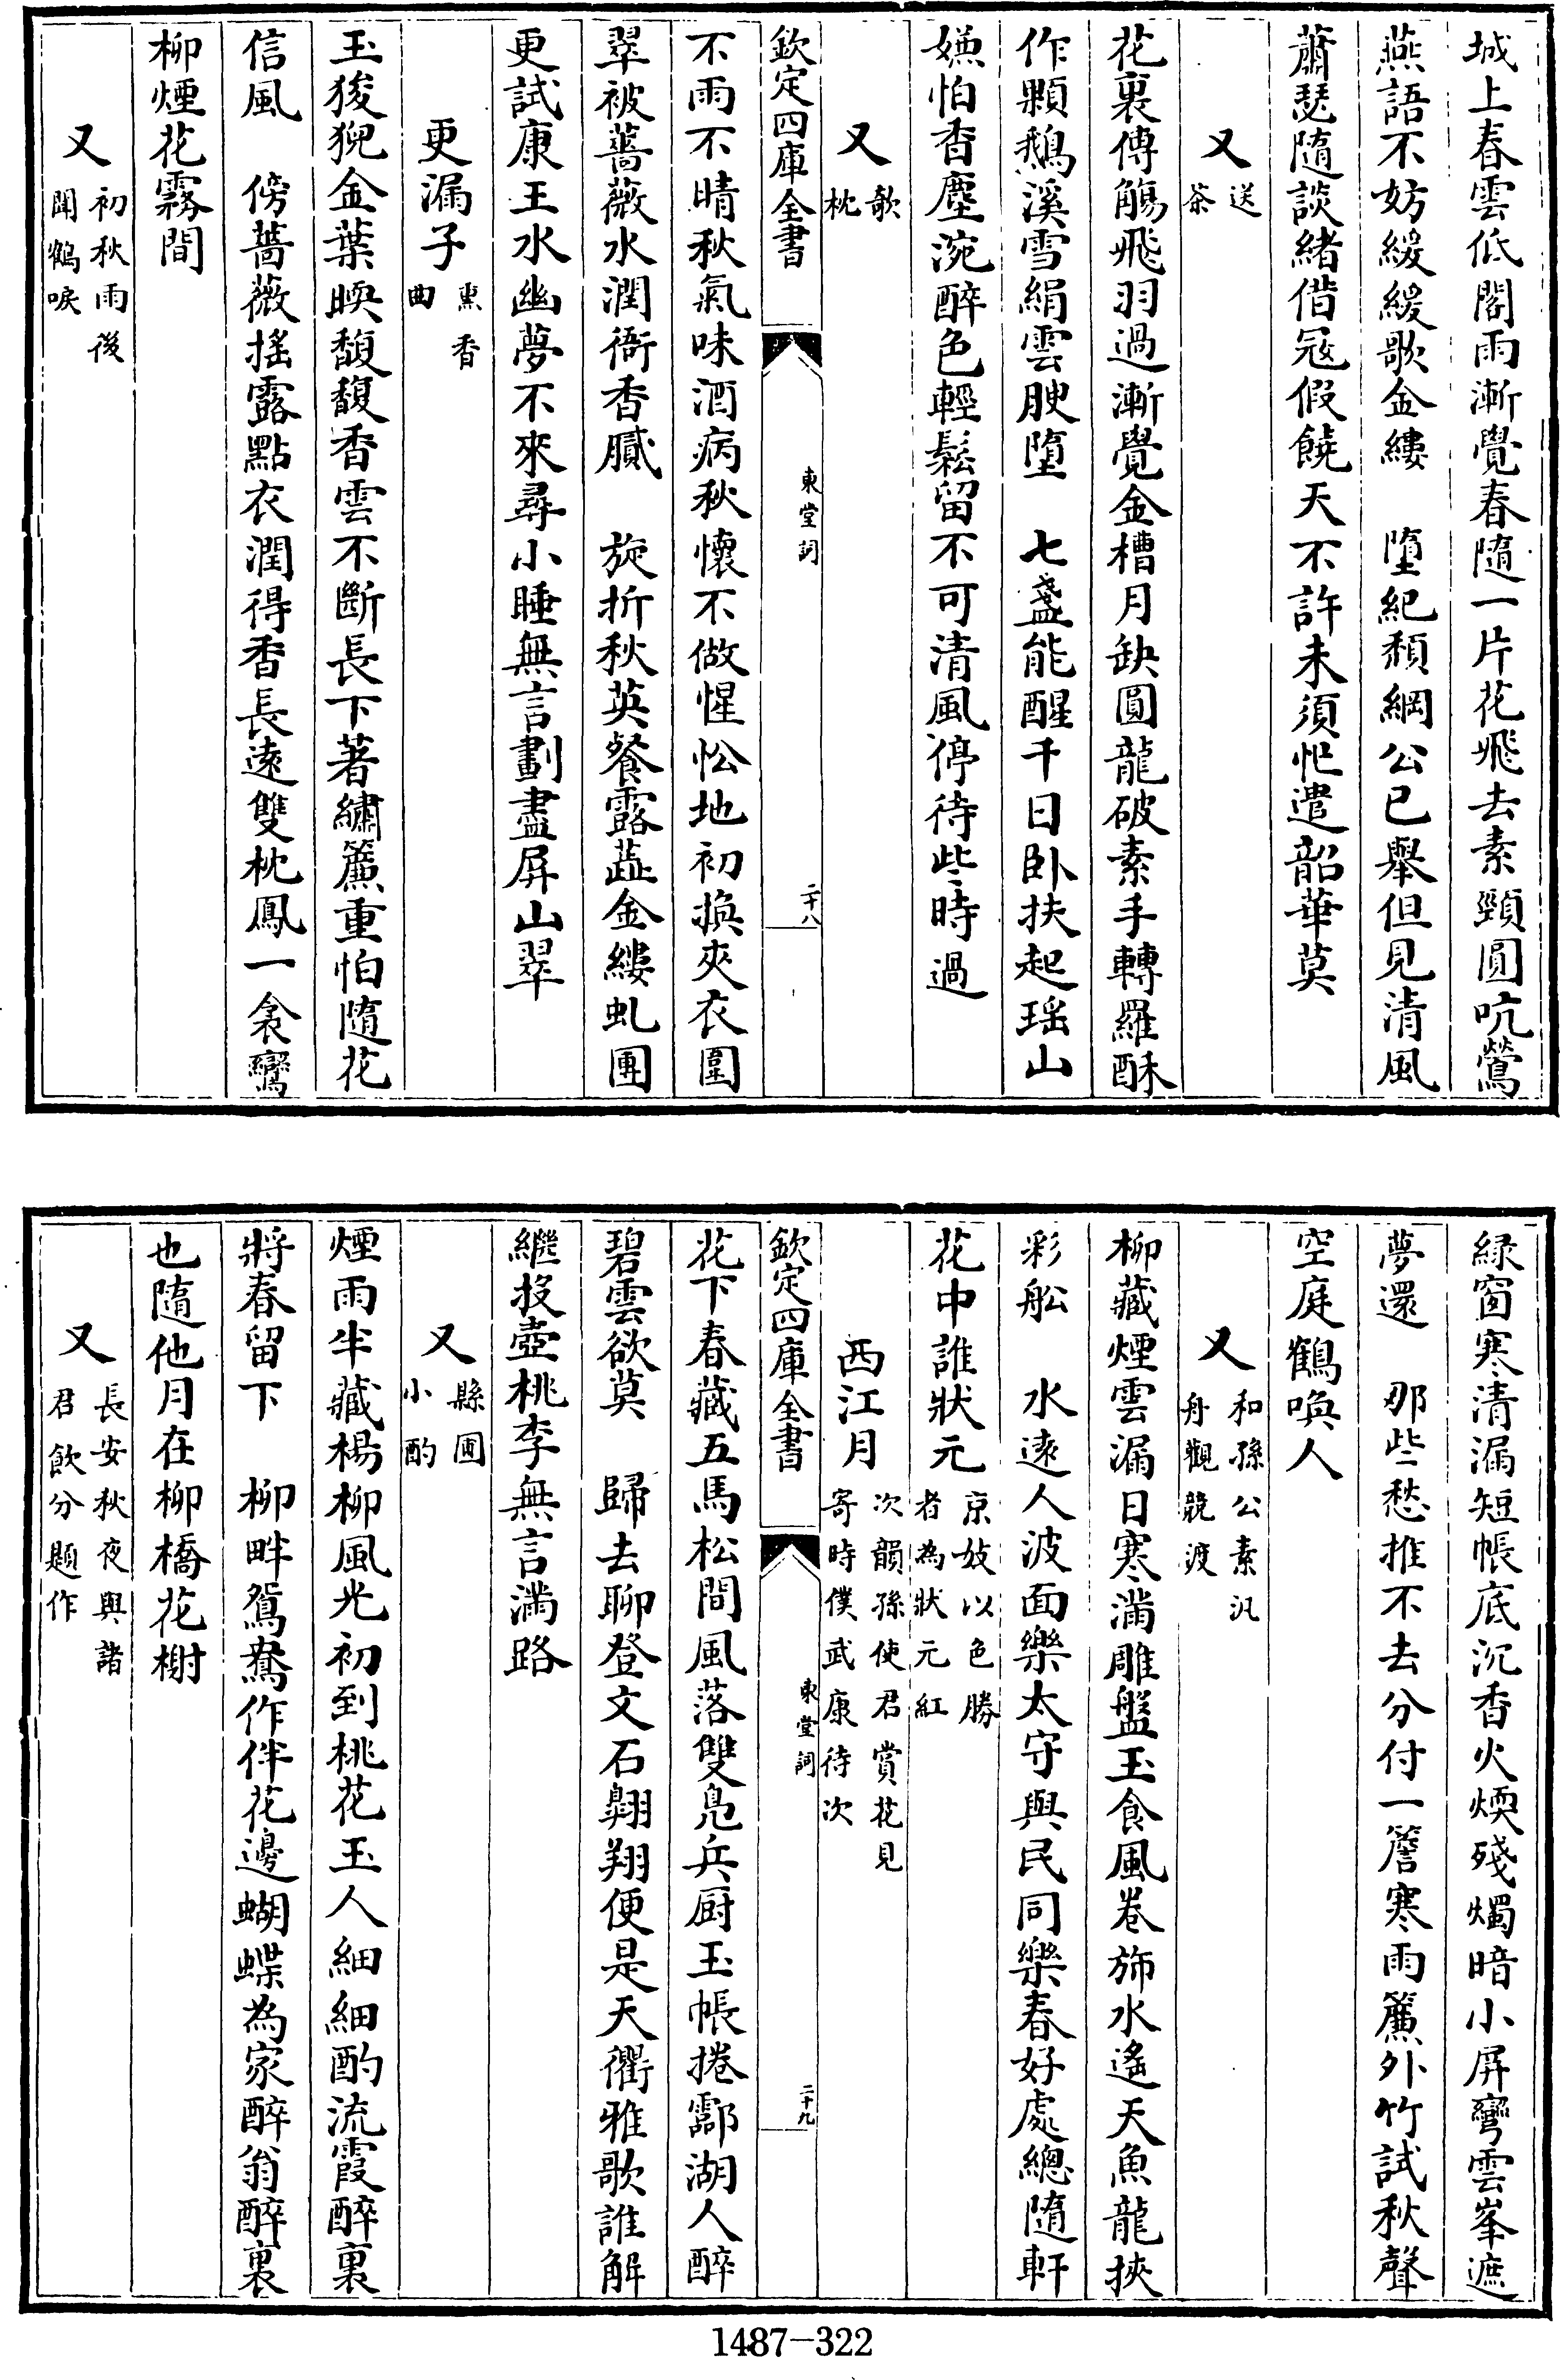 城上春雲低閣雨漸覺春隨一片花飛去素頸圓吭鶯
燕語不妨緩緩歌金縷　墮紀頹綱公已舉但見清風
蕭瑟隨談緒借宼假饒天不許未須忙遣韶華莫
又送茶
花裏傳觴飛羽過漸覺金槽月缺圓龍破素手轉羅酥
作顆鵝溪雪絹雲腴墮　七盞能醒千日卧扶起瑶山
嫌怕香塵涴醉色輕鬆留不可清風停待些時過
又欹枕
欽定四庫全書　東堂詞　二十八
不雨不晴秋氣味酒病秋懷不做惺忪地初換夾衣圍
翠被薔薇水潤衙香膩　旋折秋英餐露蘂金縷虬團
更試康王水幽夢不來尋小睡無言劃盡屏山翠
更漏子熏香曲
玉狻猊金葉暎馥馥香雲不斷長下著繡簾重怕隨花
信風　傍薔薇搖露點衣潤得香長遠雙枕鳳一衾鸞
柳煙花霧間
又初秋雨後聞鶴唳
緑窗寒清漏短帳底沉香火煗殘燭暗小屏彎雲峯遮
夢還　那些愁推不去分付一簷寒雨簾外竹試秋聲
空庭鶴喚人
又和孫公素汎舟觀競渡
柳藏煙雲漏日寒滿雕盤玉食風卷斾水遙天魚龍挾
彩舩　水遠人波面樂太守與民同樂春好處總隨軒
花中誰狀元京妓以色勝者為狀元紅
西江月次韻孫使君賞花見寄時僕武康待次
欽定四庫全書　東堂詞　二十九
花下春藏五馬松間風落雙鳧兵厨玉帳捲酃湖人醉
碧雲欲莫　歸去聊登文石翺翔便是天衢雅歌誰解
繼投壺桃李無言滿路
又縣圃小酌
煙雨半藏楊柳風光初到桃花玉人細細酌流霞醉裏
將春留下　柳畔鴛鴦作伴花邊蝴蝶為家醉翁醉裏
也隨他月在柳橋花榭
又長安秋夜與諸君飲分題作
1487-322